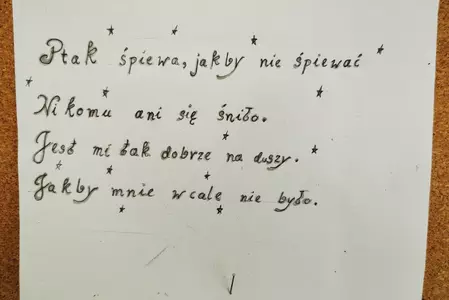 Ptak śpiewa, jakby nie śpiewać
Nikomu ani się śniło.
Jest mi tak dobrze na duszy.
Jakby mnie wcale nie było.